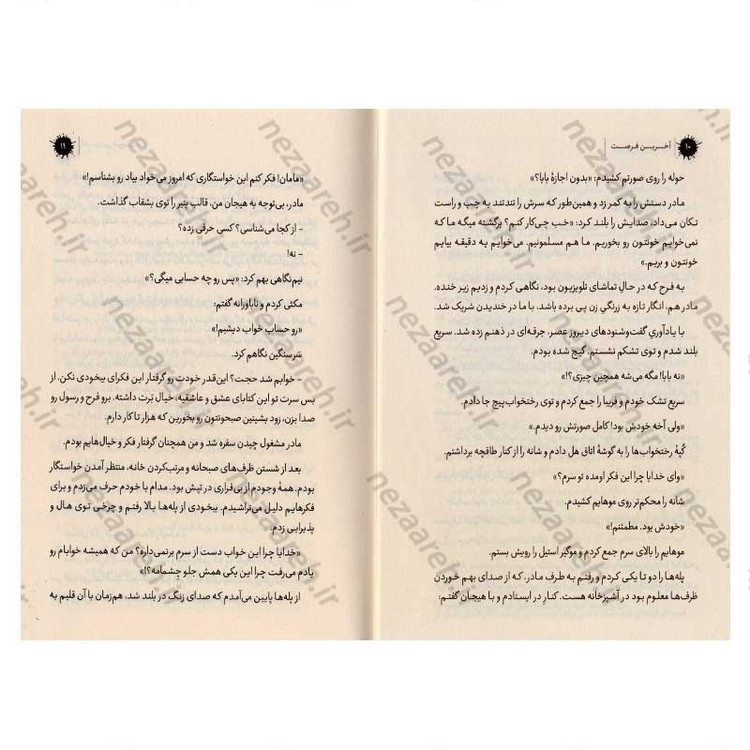 ۱۰ آخرین فرصت
حوله را روی صورتم کشیدم: «بدون اجازهٔ بابا؟»
مادر دستش را به کمر زد و همین‌طور که سرش را تندتند به چپ و راست
تکان می‌داد، صدایش را بلند کرد: «خب چی‌کار کنم؟ برگشته میگه ما که
نمی‌خوایم خونتون رو بخوریم. ما هم مسلمونیم. می‌خوایم یه دقیقه بیایم
خونتون و بریم.»
به فرح که در حال تماشای تلویزیون بود، نگاهی کردم و زدیم زیر خنده.
مادر هم، انگار تازه به زرنگیِ زن پی برده باشد، با ما در خندیدن شریک شد.
با یادآوری گفت‌وشنودهای دیروز عصر، جرقه‌ای در ذهنم زده شد. سریع
بلند شدم و توی تشکم نشستم. گیج شده بودم.
«نه بابا! مگه می‌شه همچین چیزی؟!»
سریع تشک خودم و فریبا را جمع کردم و توی رختخواب‌پیچ جا دادم.
«ولی آخه خودش بود! کامل صورتش رو دیدم.»
کُپهٔ رختخواب‌ها را به گوشهٔ اتاق هل دادم و شانه را از کنار طاقچه برداشتم.
«وای خدایا چرا این فکر اومده تو سرم؟»
شانه را محکم‌تر روی موهایم کشیدم.
«خودش بود. مطمئنم!»
موهایم را بالای سرم جمع کردم و موگیر استیل را رویش بستم.
پله‌ها را دو تا یکی کردم و رفتم به طرف مادر، که از صدای بهم خوردن
ظرف‌ها معلوم بود در آشپزخانه هست. کنارِ در ایستادم و با هیجان گفتم:
۱۱
«مامان! فکر کنم این خواستگاری که امروز می‌خواد بیاد رو بشناسم!»
مادر، بی‌توجه به هیجان من، قالب پنیر را توی بشقاب گذاشت.
- از کجا می‌شناسی؟ کسی حرفی زده؟
- نه!
نیم‌نگاهی بهم کرد: «پس رو چه حسابی میگی؟»
مکثی کردم و ناباورانه گفتم:
«رو حساب خواب دیشبم!»
سَرسنگین نگاهم کرد.
- خوابم شد حجت؟ این‌قدر خودت رو گرفتار این فکرای بیخودی نکن. از
بس سرت تو این کتابای عشق و عاشقیه، خیال بَرت داشته. برو فرح و رسول رو
صدا بزن، زود بشینین صبحونتون رو بخورین که هزار تا کار دارم.
مادر مشغول چیدن سفره شد و من همچنان گرفتار فکر و خیال‌هایم بودم.
بعد از شستن ظرف‌های صبحانه و مرتب‌کردن خانه، منتظر آمدن خواستگار
بودم. همهٔ وجودم از بی‌قراری در تپش بود. مدام با خودم حرف می‌زدم و برای
فکرهایم دلیل می‌تراشیدم. بیخودی از پله‌ها بالا رفتم و چرخی توی هال و
پذیرایی زدم.
«خدایا چرا این خواب دست از سرم برنمی‌داره؟ من که همیشه خوابام رو
یادم می‌رفت چرا این یکی همش جلو چشمامه؟!»
از پله‌ها پایین می‌آمدم که صدای زنگ در بلند شد، هم‌زمان با آن قلبم به
nezaareh.ir
nezaareh.ir
nezaareh.ir
nezaareh.ir
nezaareh.ir
nezaareh.ir